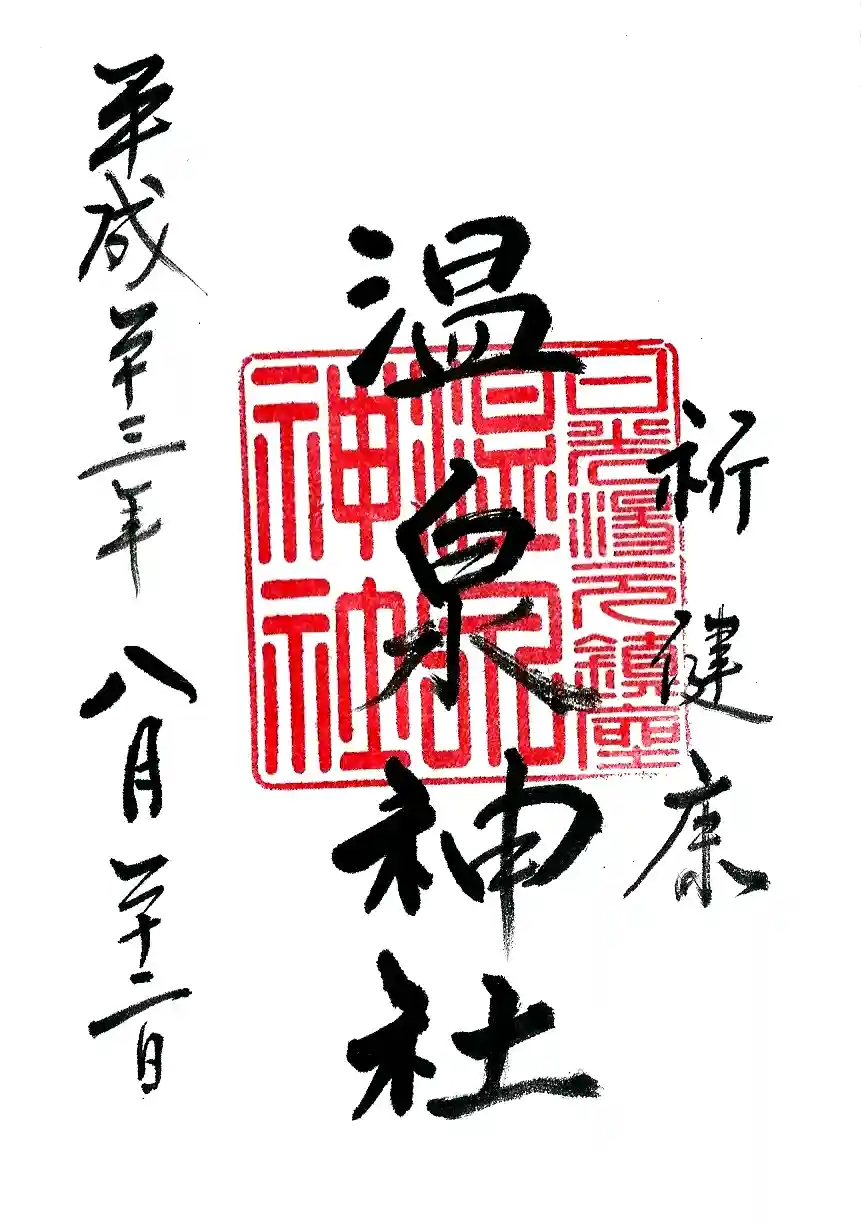 祈健康
温泉神社
平成二十三年八月二十二日
日光湯元鎮座
温泉神社